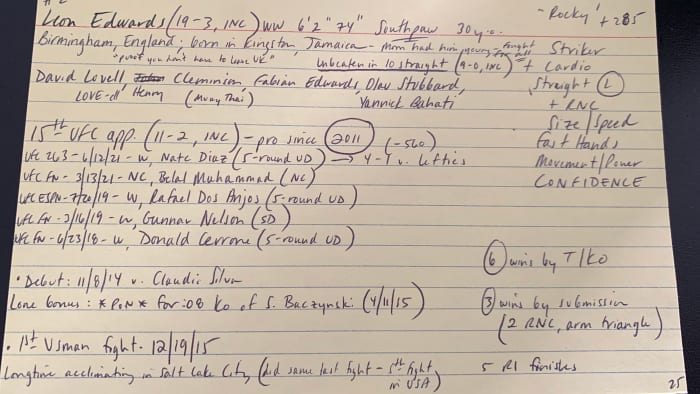 Leon Edwards (19-3, INC) WW 6'2" 74" Southpaw 30 y.o. "Rocky" +285
Birmingham, England; born in Kingston, Jamaica - mom had him
"prove you don't have to leave UK" Unbeaten in 10 straight (9-0, INC)
David Lovell Cleminson Fabian Edwards, Olav Stubbard,
LOVE-ell Henry (Muay Thai) Yannick Bahati
Striker
+ Cardio
Straight (L)
+ RNC
Size/Speed
Fast Hands
Movement/Power
CONFIDENCE
15th UFC app. (11-2, INC) - pro since 2011
UFC 263 - 6/12/21 - W, Nate Diaz (5-round UD) (-560) → 4-1 v. lefties
UFC FN - 3/13/21 - NC, Belal Muhammad (NC)
UFC ESPN - 7/20/19 - W, Rafael Dos Anjos (5-round UD)
UFC FN - 3/16/19 - W, Gunnar Nelson (SD)
UFC FN - 6/23/18 - W, Donald Cerrone (5-round UD)
• Debut: 11/8/14 v. Claudio Silva
Lone bonus: *PoN* for :08 KO of S. Baczynski (4/11/15)
• 1st Usman fight - 12/19/15
Longtime acclimating in Salt Lake City (did same last fight - 5th fight
in USA)
6 wins by T/KO
3 wins by submission
(2 RNC, arm triangle)
5 R1 finishes
25